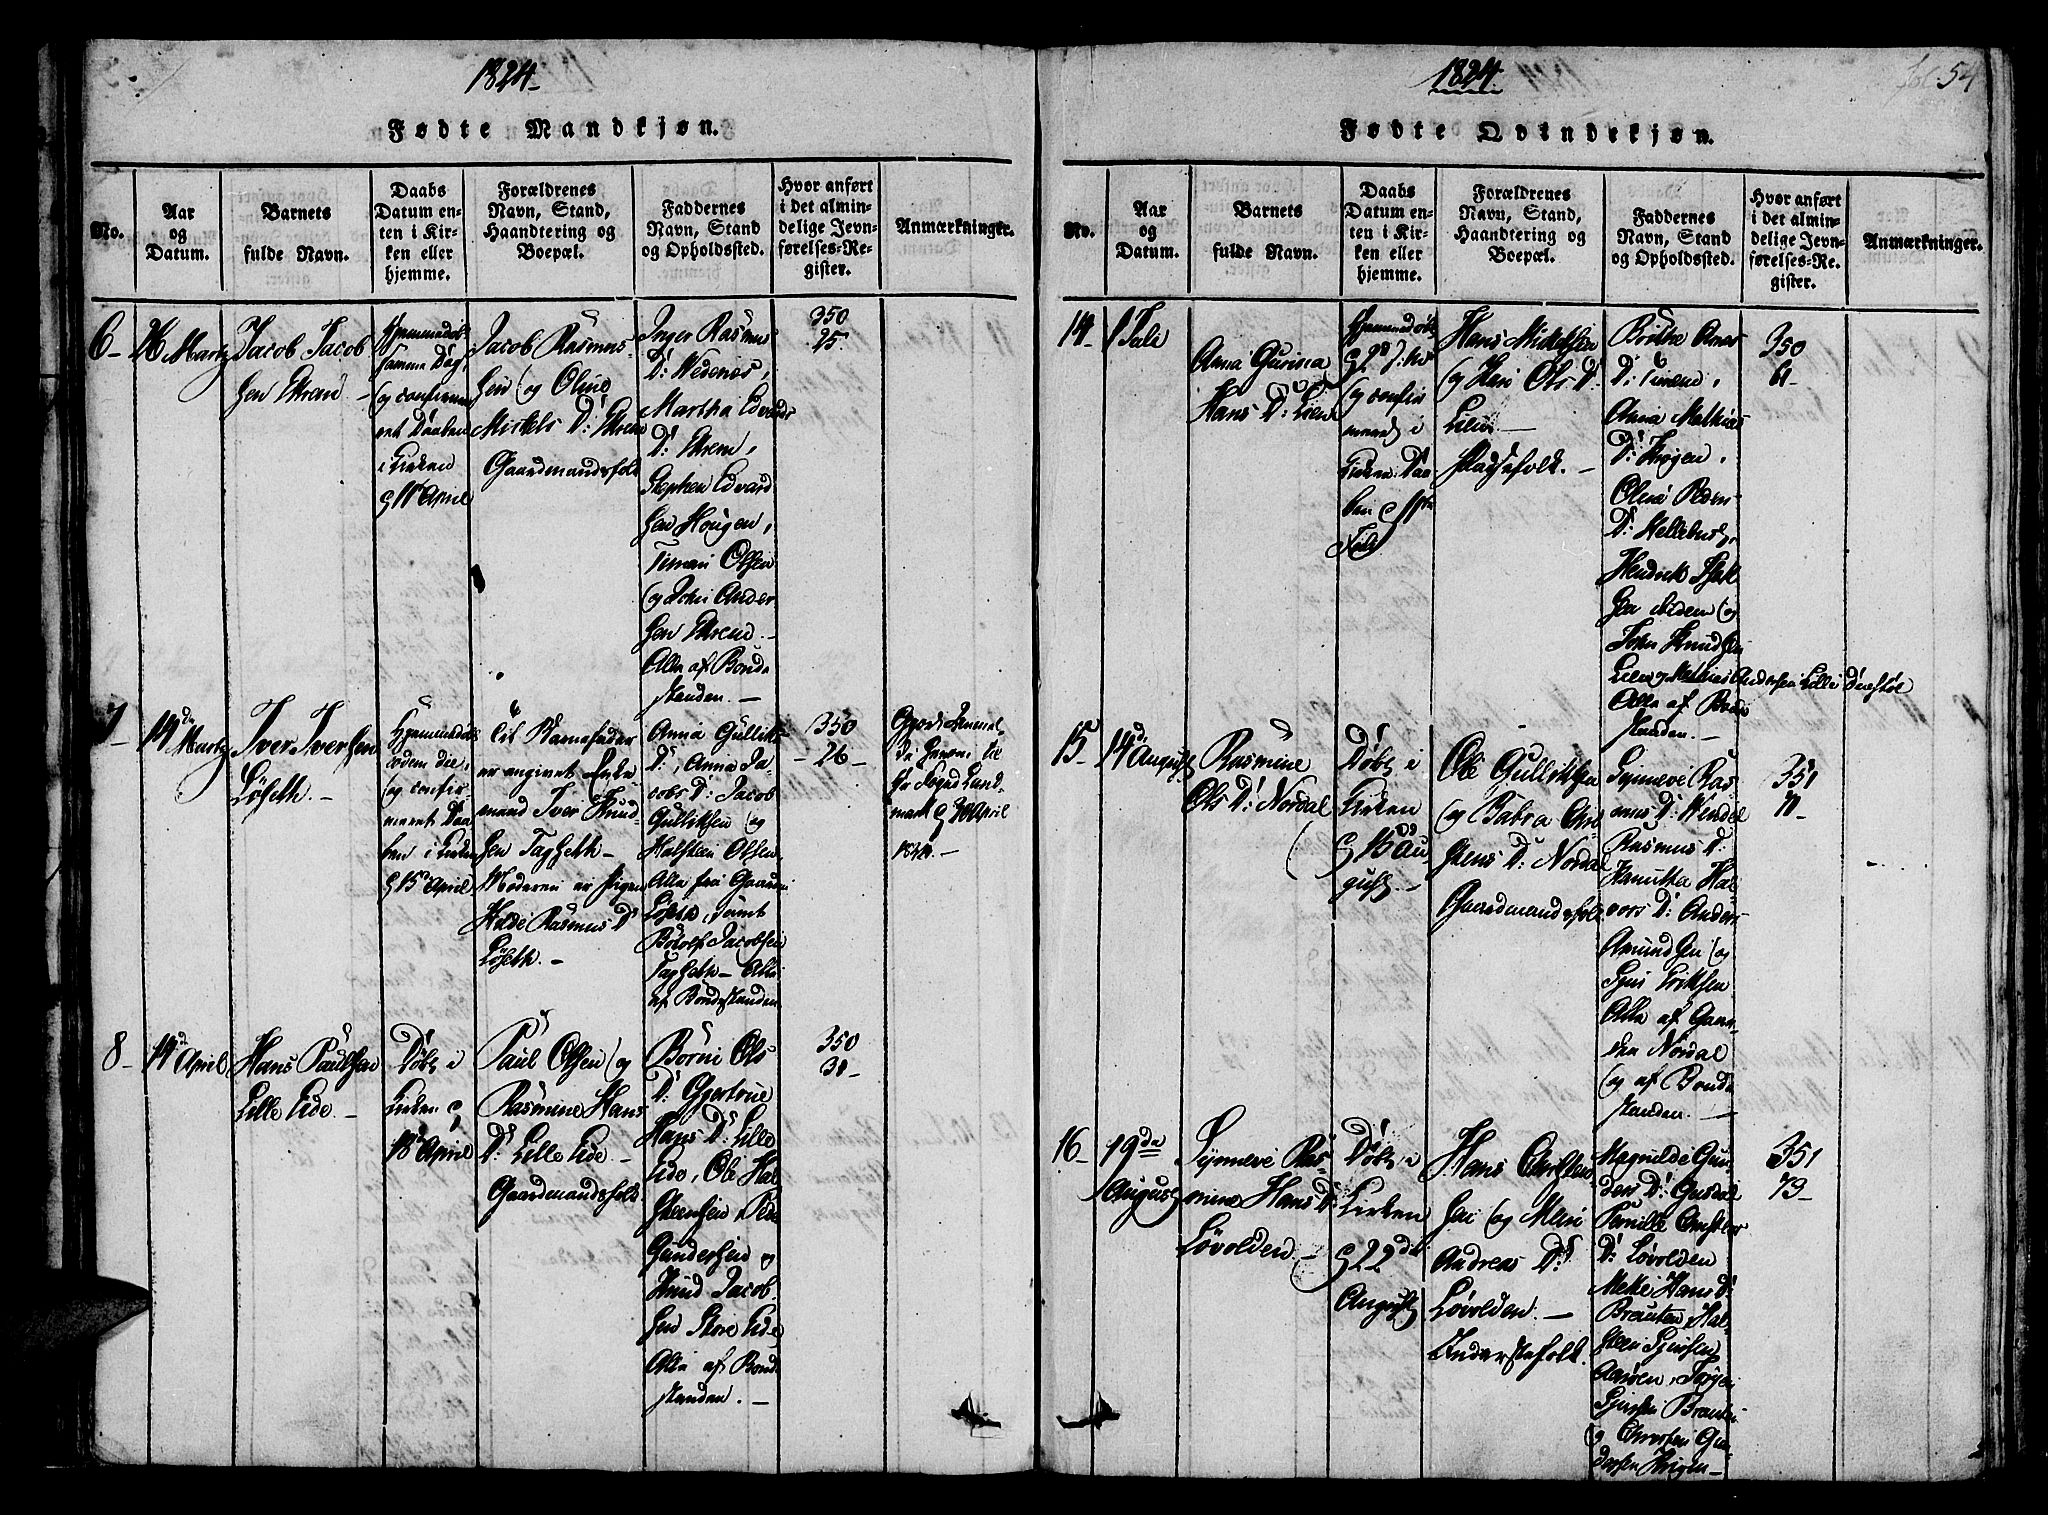 1824
Fødte Mandkjøn.
No.
Aar
og
Datum.
Barnets
fulde Navn.
Daabs
Datum en-
ten i Kir-
ken eller
hjemme.
Forældrenes
Navn, Stand,
Haandtering og
Boepæl.
Faddernes
Navn, Stand
og Opholdssted.
Hvor anført
i det almin-
delige Jevn-
førelses-Re-
gister.
Anmærkninger.
6
26 Martz
Jacob Jacob
sen Ekrem
Hjemmedøbt
samme Dag,
og confirme
ret Daaben
i Kirken
11 April
Jacob Rasmus-
sen og Oline
Mikels D: Ekrem
Gaardmandsfolk
Inger Rasmus
D:
Martha Edvards
D: Ekrem,
Stephen Edvard
sen Hougen,
Olsen
og John Ander
sen Ekrem.
Alle af Bonde
standen.
350
25
7
14de Martz
Iver Iversen
Løseth.
Hjemmedøbt
eodem die,
og confir-
meret Daa
ben i Kirken
15 April
Til Barnefader
er angivet Enke
mand Iver Knud-
sen Tagseth
Moderen er Pigen
Rasmus D
Løseth.
Anna Gulliks
D:, Anna Ja-
cobs D: Jacob
Gulliksen og
Halsteen Olsen,
Alle fra Gaarden
Løseth, samt
Jacobsen
Tagseth Alle
af Bondestanden
350
26
April
1824.
8
14de April
Hans Paulsen
Lille Eide.
Døbt i
Kirken
18 April
Paul Olsen og
Rasmine Hans
D: Lille Eide
Gaardmandsfolk
Børni Ols
D: Gjertrue
Hans D: Lille
Eide, Ole Hal
steensen, Peder
Gundersen og
Knud Jacob
sen Store Eide
Alle af Bonde
standen.
350
31
1824.
fol 54
Fødte Qvindekjøn.
No.
Aar
og
Datum.
Barnets
fulde Navn.
Daabs
Datum en-
ten i Kir-
ken eller
hjemme.
Forældrenes
Navn, Stand,
Haandtering og
Boepæl.
Faddernes
Navn, Stand
og Opholdssted.
Hvor anført
i det almin-
delige Jevn-
førelses-Re-
gister.
Anmærkninger.
14
1 Juli
Anna Gurina
Hans D: Lien
Hjemmedøbt
og confir
meret i
Kirken Daa
ben
Juli
Hans Mickelsen
og Ols D:
Lien
Pladsefolk.
Brithe
D:
Anna Mathias
D: Krogen,
Oline Peders
D:
Hendrik
sen og
John Knudsen
Lien og Mathias Andersen Lille
Alle af Bonde
standen.
350
61
15
14de August
Rasmine
Ols D: Nordal
Døbt i
Kirken
15 Au
gust
Ole Gulliksen
og Babra Chri
stens D: Nordal
Gaardmandsfolk
Synnevi Ras
mus D:
Rasmus D:
Hal
vors D: Anders
Amundsen og
Eriksen
Alle af Gaar
den Nordal
og af Bonde
standen.
351
71
16
19de
August
Synnevi Ras
mine Hans D:
Løvolden.
Døbt i
Kirken
22de
August
Hans Christen
sen og Mari
Andreas D:
Løvolden.
Inderstefolk.
Magnilde Gun
ders D: Gusdal
Pernille Christens
D: Løvolden
Mette Hans D:
Brauten, Hal-
steen
Brauten
og Christen Gun
dersen Krogen
351
73